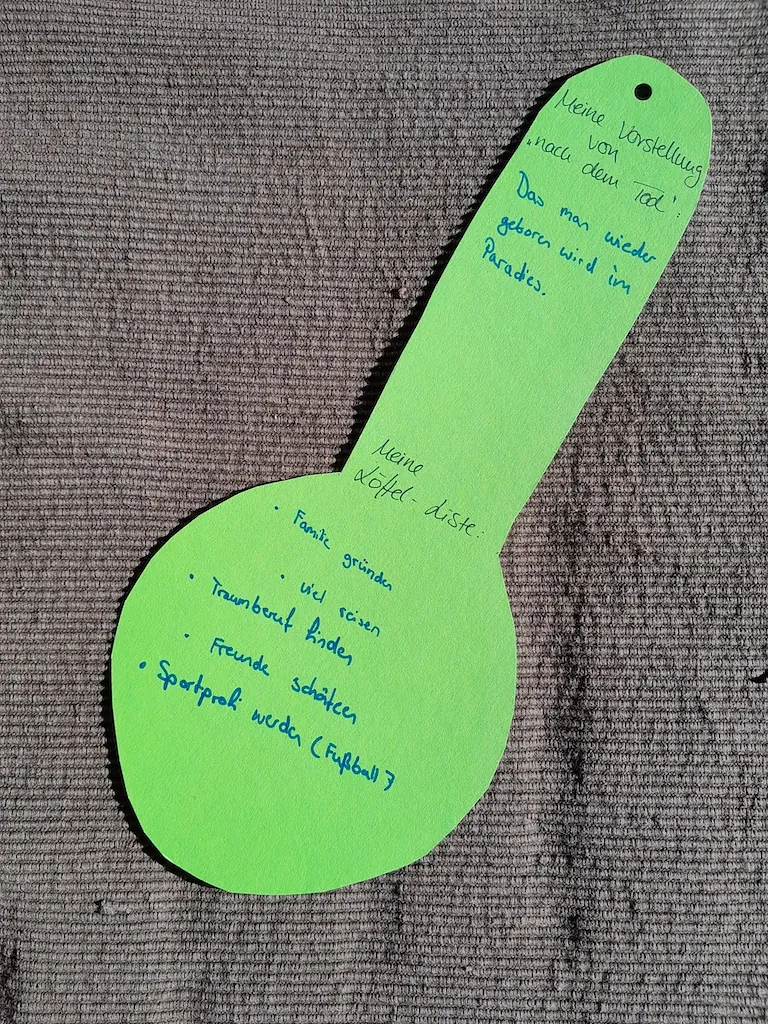 Meine Vorstellung
von
„nach dem Tod":
Das man wieder
geboren wird im
Paradies.
Meine
Löffel-Liste:
• Familie gründen
• viel reisen
• Traumberuf finden
• Freunde schätzen
• Sportprofi werden (Fußball)